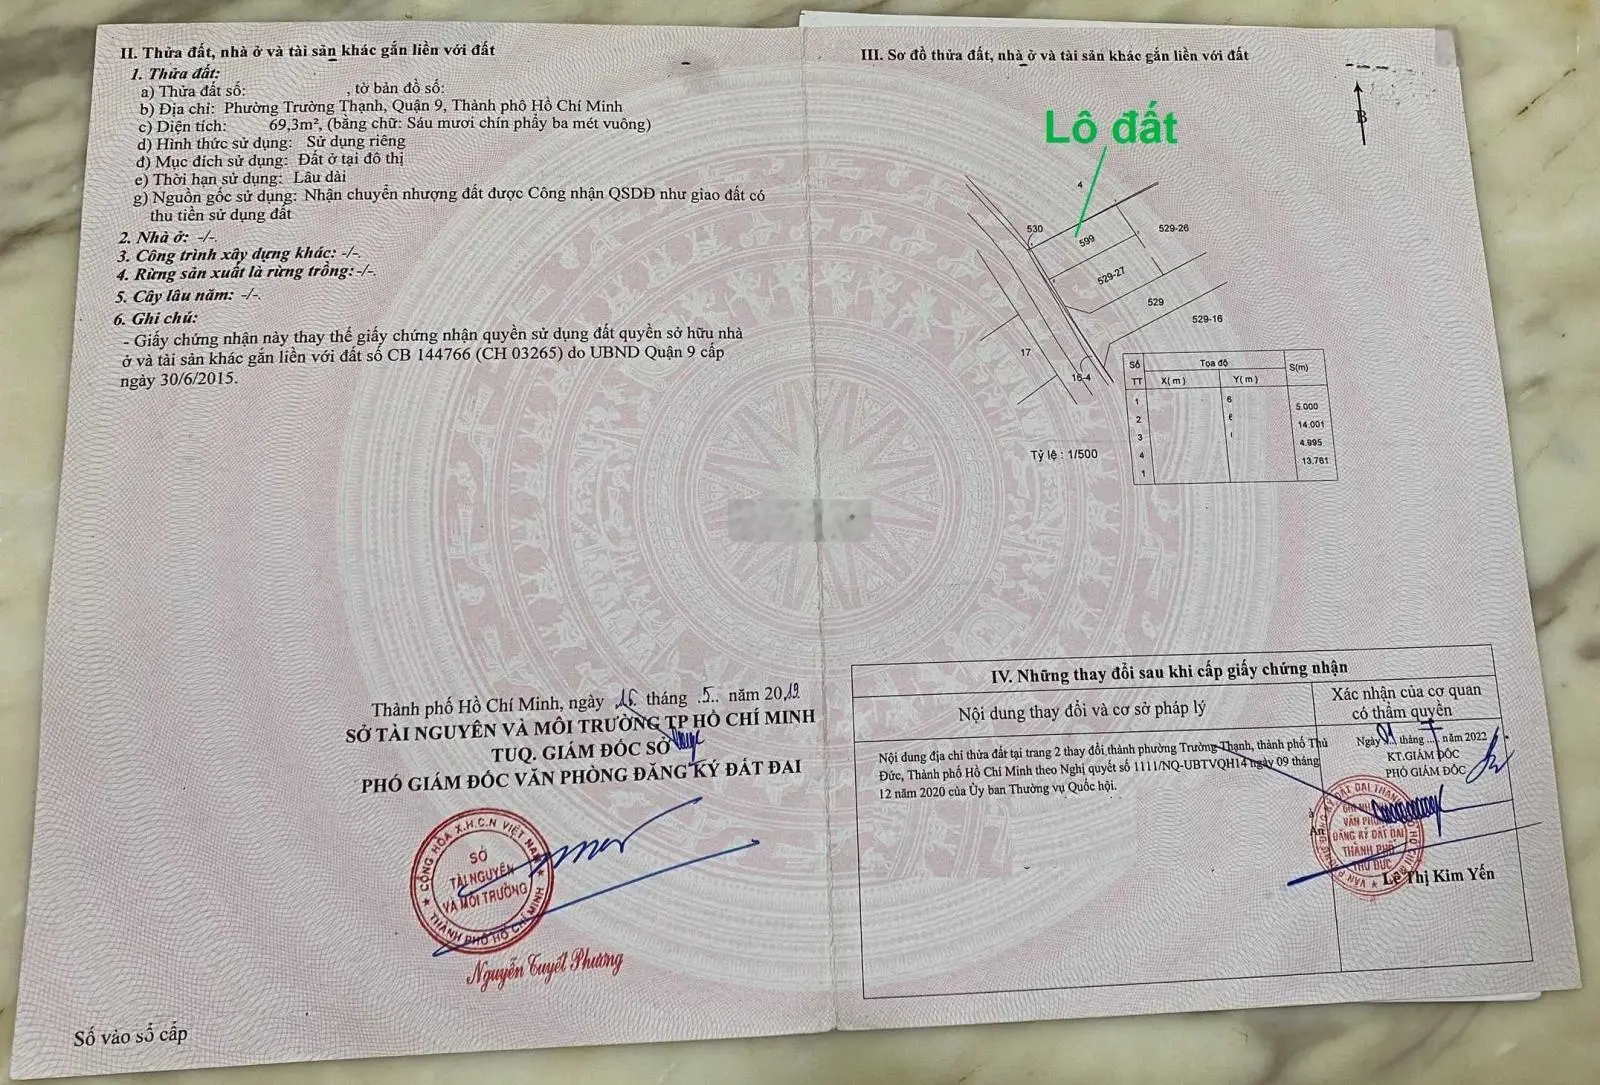 II. Thửa đất, nhà ở và tài sản khác gắn liền với đất
1. Thửa đất:
a) Thửa đất số: , tờ bản đồ số:
b) Địa chỉ: Phường Trường Thạnh, Quận 9, Thành phô Hồ Chí Minh
c) Diện tích: 69,3m², (bằng chữ: Sáu mươi chín phẩy ba mét vuông)
d) Hình thức sử dụng: Sử dụng riêng
đ) Mục đích sử dụng: Đất ở tại đô thị
e) Thời hạn sử dụng: Lâu dài
g) Nguồn gốc sử dụng: Nhận chuyển nhượng đất được Công nhận QSDĐ như giao đất có
thu tiền sử dụng đất
2. Nhà ở: -/-.
3. Công trình xây dựng khác: -/-.
4. Rừng sản xuất là rừng trồng: -/-.
5. Cây lâu năm: -/-.
6. Ghi chú:
- Giấy chứng nhận này thay thế giấy chứng nhận quyền sử dụng đất quyền sở hữu nhà
ở và tài sản khác gắn liền với đất số CB 144766 (CH 03265) do UBND Quận 9 cấp
ngày 30/6/2015.
Thành phố Hồ Chí Minh, ngày 15 tháng 5 năm 2019
SỞ TÀI NGUYÊN VÀ MÔI TRƯỜNG TP HỒ CHÍ MINH
TUQ. GIÁM ĐỐC SỞ
PHÓ GIÁM ĐỐC VĂN PHÒNG ĐĂNG KÝ ĐẤT ĐAI
CỘNG HÒA X.H.C.N VIỆT NAM
SỞ
TÀI NGUYÊN
VÀ MÔI TRƯỜNG
THÀNH PHỐ HỒ CHÍ MINH
Nguyễn Tuyết Phương
Số vào sổ cấp
III. Sơ đồ thửa đất, nhà ở và tài sản khác gắn liền với đất
B
Lô đất
4
530
599
529-26
529-27
529
529-16
17
16-4
Số
TT
Tọa độ
X( m )
Y( m )
S(m)
1
6
5.000
2
14.001
3
4.995
4
13.761
1
Tỷ lệ : 1/500
IV. Những thay đổi sau khi cấp giấy chứng nhận
Nội dung thay đổi và cơ sở pháp lý
Xác nhận của cơ quan
có thẩm quyền
Nội dung địa chỉ thửa đất tại trang 2 thay đổi thành phường Trường Thạnh, thành phố Thủ
Đức, Thành phố Hồ Chí Minh theo Nghị quyết số 1111/NQ-UBTVQH14 ngày 09 tháng
12 năm 2020 của Ủy ban Thường vụ Quốc hội.
Ngày tháng năm 2022
KT.GIÁM ĐỐC
PHÓ GIÁM ĐỐC
ĐĂNG KÝ ĐẤT ĐAI
THÀNH PHỐ
THỦ ĐỨC
Lê Thị Kim Yến